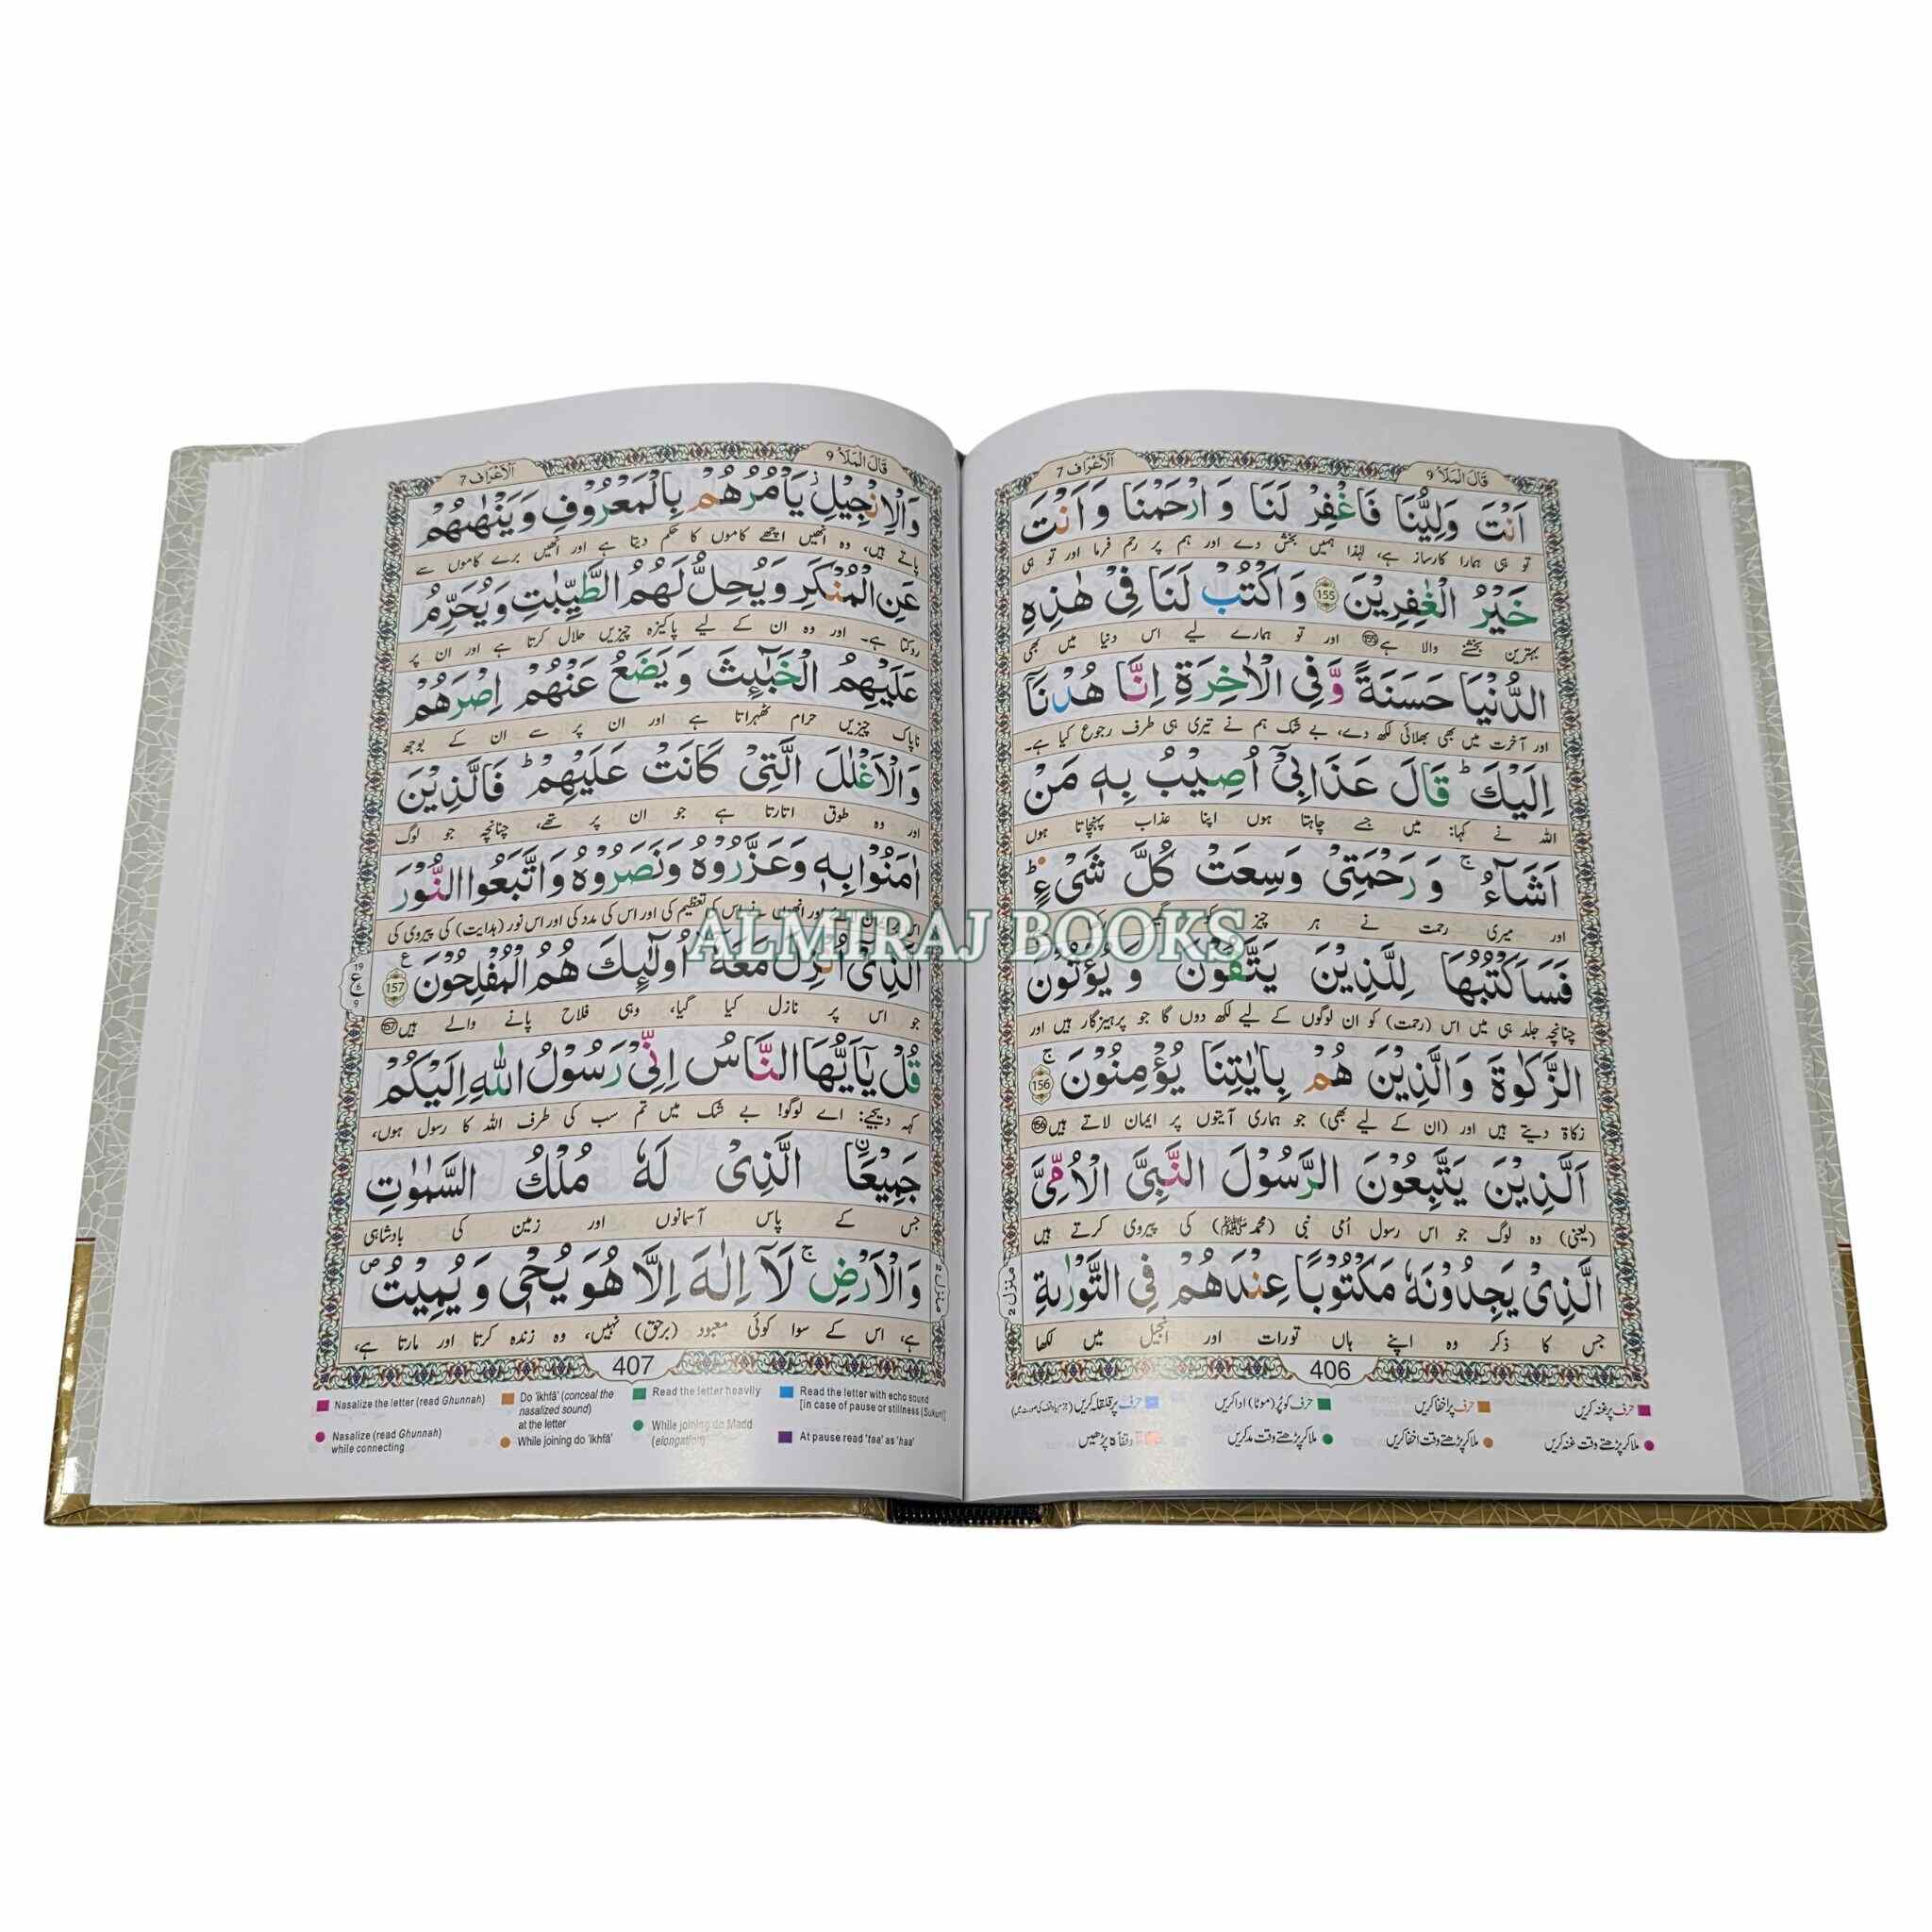 قَالَ الْمَلَاُ 9
اَلْاَعْرَاف 7
اَنْتَ وَلِيُّنَا فَاغْفِرْ لَنَا وَ ارْحَمْنَا وَ اَنْتَ
تو ہی ہمارا کارساز ہے، لہٰذا ہمیں بخش دے اور ہم پر رحم فرما اور تو ہی
خَيْرُ الْغٰفِرِيْنَ 155 وَ اكْتُبْ لَنَا فِيْ هٰذِهِ
بہترین بخشنے والا ہے 155 اور تو ہمارے لیے اس دنیا میں بھی
الدُّنْيَا حَسَنَةً وَّ فِي الْاٰخِرَةِ اِنَّا هُدْنَاۤ
اور آخرت میں بھی بھلائی لکھ دے، بے شک ہم نے تیری ہی طرف رجوع کیا ہے۔
اِلَيْكَ ؕ قَالَ عَذَابِيْۤ اُصِيْبُ بِهٖ مَنْ
اللہ نے کہا: میں جسے چاہتا ہوں اپنا عذاب پہنچاتا ہوں
اَشَآءُ ۚ وَ رَحْمَتِيْ وَسِعَتْ كُلَّ شَيْءٍ ؕ
اور میری رحمت نے ہر چیز کو
فَسَاَكْتُبُهَا لِلَّذِيْنَ يَتَّقُوْنَ وَ يُؤْتُوْنَ
چنانچہ جلد ہی میں اس (رحمت) کو ان لوگوں کے لیے لکھ دوں گا جو پرہیزگار ہیں اور
الزَّكٰوةَ وَ الَّذِيْنَ هُمْ بِاٰيٰتِنَا يُؤْمِنُوْنَ ۚ 156
زکاۃ دیتے ہیں اور (ان کے لیے بھی) جو ہماری آیتوں پر ایمان لاتے ہیں 156
اَلَّذِيْنَ يَتَّبِعُوْنَ الرَّسُوْلَ النَّبِيَّ الْاُمِّيَّ
(یعنی) وہ لوگ جو اس رسول اُمی نبی (محمد ﷺ) کی پیروی کرتے ہیں
الَّذِيْ يَجِدُوْنَهٗ مَكْتُوْبًا عِنْدَهُمْ فِي التَّوْرٰىةِ
جس کا ذکر وہ اپنے ہاں تورات اور انجیل میں لکھا
منزل 2
406
حرف پر غنہ کریں
حرف پر اخفا کریں
حرف کو پُر (موٹا) ادا کریں
حرف پر قلقلہ کریں
ملا کر پڑھتے وقت غنہ کریں
ملا کر پڑھتے وقت اخفا کریں
ملا کر پڑھتے وقت مد کریں
وقفاً ہ پڑھیں
قَالَ الْمَلَاُ 9
اَلْاَعْرَاف 7
وَ الْاِنْجِيْلِ ؗ يَاْمُرُهُمْ بِالْمَعْرُوْفِ وَ يَنْهٰىهُمْ
پاتے ہیں، وہ انھیں اچھے کاموں کا حکم دیتا ہے اور انھیں برے کاموں سے
عَنِ الْمُنْكَرِ وَ يُحِلُّ لَهُمُ الطَّيِّبٰتِ وَ يُحَرِّمُ
روکتا ہے۔ اور وہ ان کے لیے پاکیزہ چیزیں حلال کرتا ہے اور ان پر
عَلَيْهِمُ الْخَبٰٓئِثَ وَ يَضَعُ عَنْهُمْ اِصْرَهُمْ
ناپاک چیزیں حرام ٹھہراتا ہے اور ان پر سے ان کے بوجھ
وَ الْاَغْلٰلَ الَّتِيْ كَانَتْ عَلَيْهِمْ ؕ فَالَّذِيْنَ
اور وہ طوق اتارتا ہے جو ان پر تھے، چنانچہ جو لوگ
اٰمَنُوْا بِهٖ وَ عَزَّرُوْهُ وَ نَصَرُوْهُ وَ اتَّبَعُوا النُّوْرَ
اس کی تعظیم کی اور اس کی مدد کی اور اس نور (ہدایت) کی پیروی کی
الَّذِيْۤ اُنْزِلَ مَعَهٗۤ اُولٰٓئِكَ هُمُ الْمُفْلِحُوْنَ 157 ع
جو اس پر نازل کیا گیا، وہی فلاح پانے والے ہیں 157
19 ع 6 9
قُلْ يٰۤاَيُّهَا النَّاسُ اِنِّيْ رَسُوْلُ اللّٰهِ اِلَيْكُمْ
کہہ دیجیے: اے لوگو! بے شک میں تم سب کی طرف اللہ کا رسول ہوں،
جَمِيْعَا اۨلَّذِيْ لَهٗ مُلْكُ السَّمٰوٰتِ
جس کے پاس آسمانوں اور زمین کی بادشاہی
وَ الْاَرْضِ ۚ لَاۤ اِلٰهَ اِلَّا هُوَ يُحْيٖ وَ يُمِيْتُ ۪
ہے، اس کے سوا کوئی معبود (برحق) نہیں، وہ زندہ کرتا اور مارتا ہے،
منزل 2
407
Nasalize the letter (read Ghunnah)
Do 'ikhfâ' (conceal the nasalized sound) at the letter
Read the letter heavily
Read the letter with echo sound [in case of pause or stillness (Sukun)]
Nasalize (read Ghunnah) while connecting
While joining do 'ikhfâ'
While joining do Madd (elongation)
At pause read 'taa' as 'haa'
ALMIRAJ BOOKS